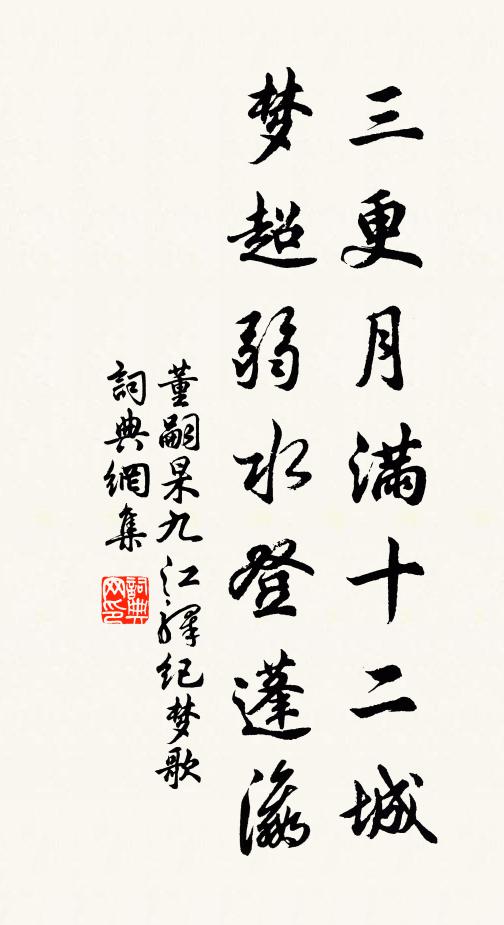 三更月满十二城
梦超弱水登蓬瀛
董嗣杲九江驿纪梦歌
詞典網集
詞典网印